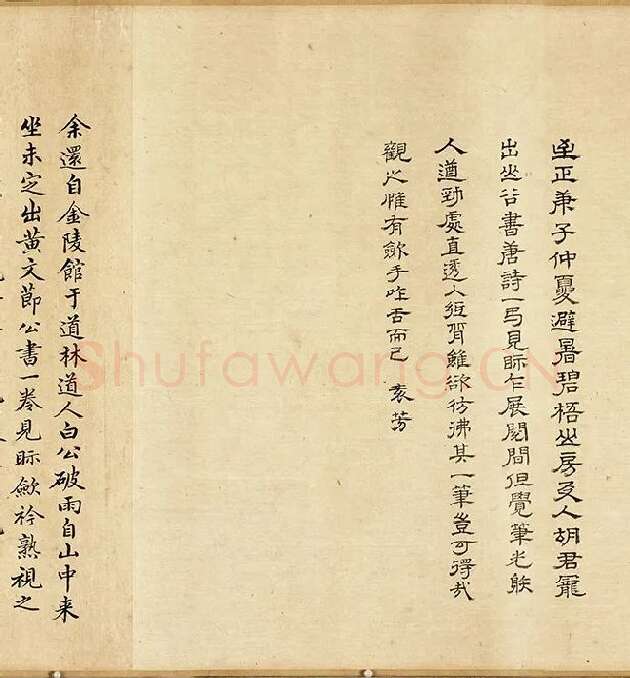 至正庚子仲夏避暑碧梧山房友人胡君寵
出山谷書唐詩一弓見眎乍展閱間但覺筆光䠶
人遒勁處直透入紙背雖欲彷沸其一筆豈可得哉
觀之惟有斂手咋舌而已 袁芳
余還自金陵館于道林道人白公破雨自山中来
坐未定出黃文節公書一卷見眎斂衿熟視之
Shufawang.CN